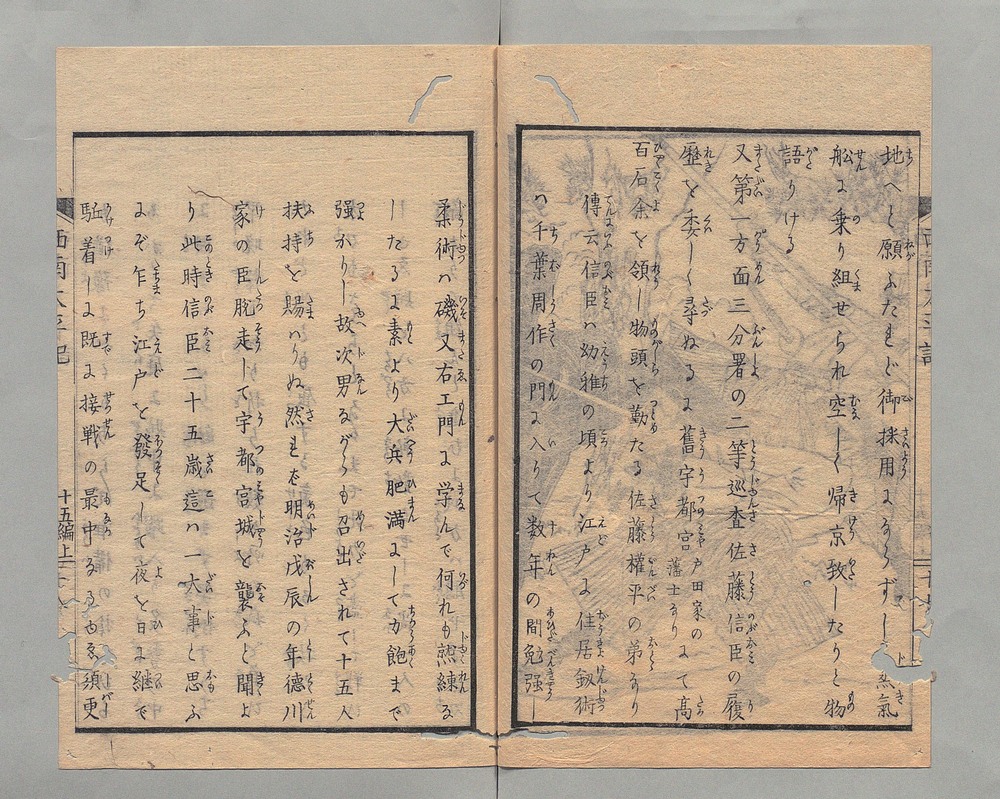 地へと願ふたれど御採用にならずして忝氣
舩に乗り組せられ空しく帰京致したりと物
語りける
又第一方面三分署の二等巡査佐藤信臣の履
歴を委しく尋ぬるに舊宇都宮戸田家の藩士なりにて高
百石余を領し物頭を勤たる佐藤權平の弟なり
傳云信臣ハ幼雅の頃より江戸に住居劔術
ハ千葉周作の門に入りて数年の間勉强し
柔術ハ磯又右エ門に学んで何れも熟練る
したるに素より大兵肥満にして力飽まで
强かりし故次男ながらも召出されて十五人
扶持を賜ハりぬ然るに明治戊辰の年德川
家の臣脱走して宇都宮城を襲ふと聞よ
り此時信臣二十五歳這ハ一大事と思ふ
にぞ乍ち江戸を發足して夜を日に継で
駈着しに既に接戦の最中なるゆゑ須更
西南太平記
十五編上